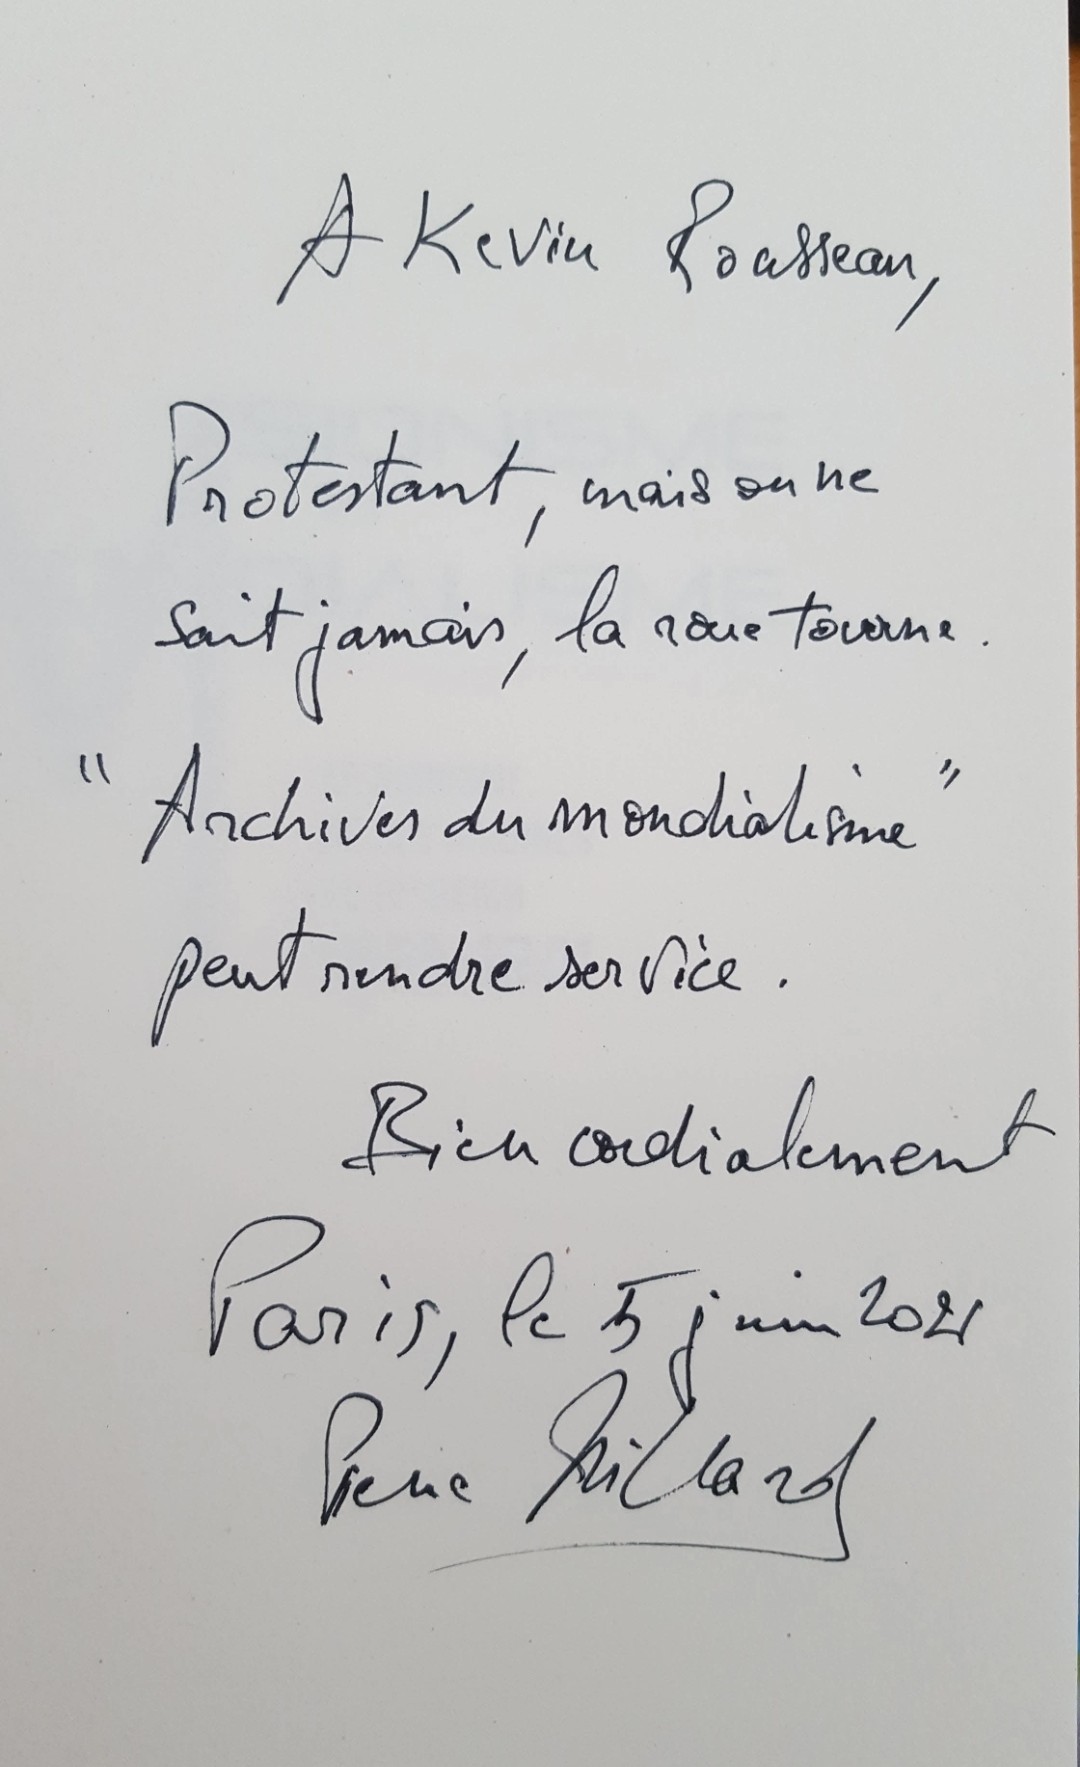 A Kevin Rousseau,
Protestant, mais on ne
sait jamais, la roue tourne.
"Archives du mondialisme"
peut rendre service.
Bien cordialement
Paris, le 5 juin 2021
Pierre Hillard